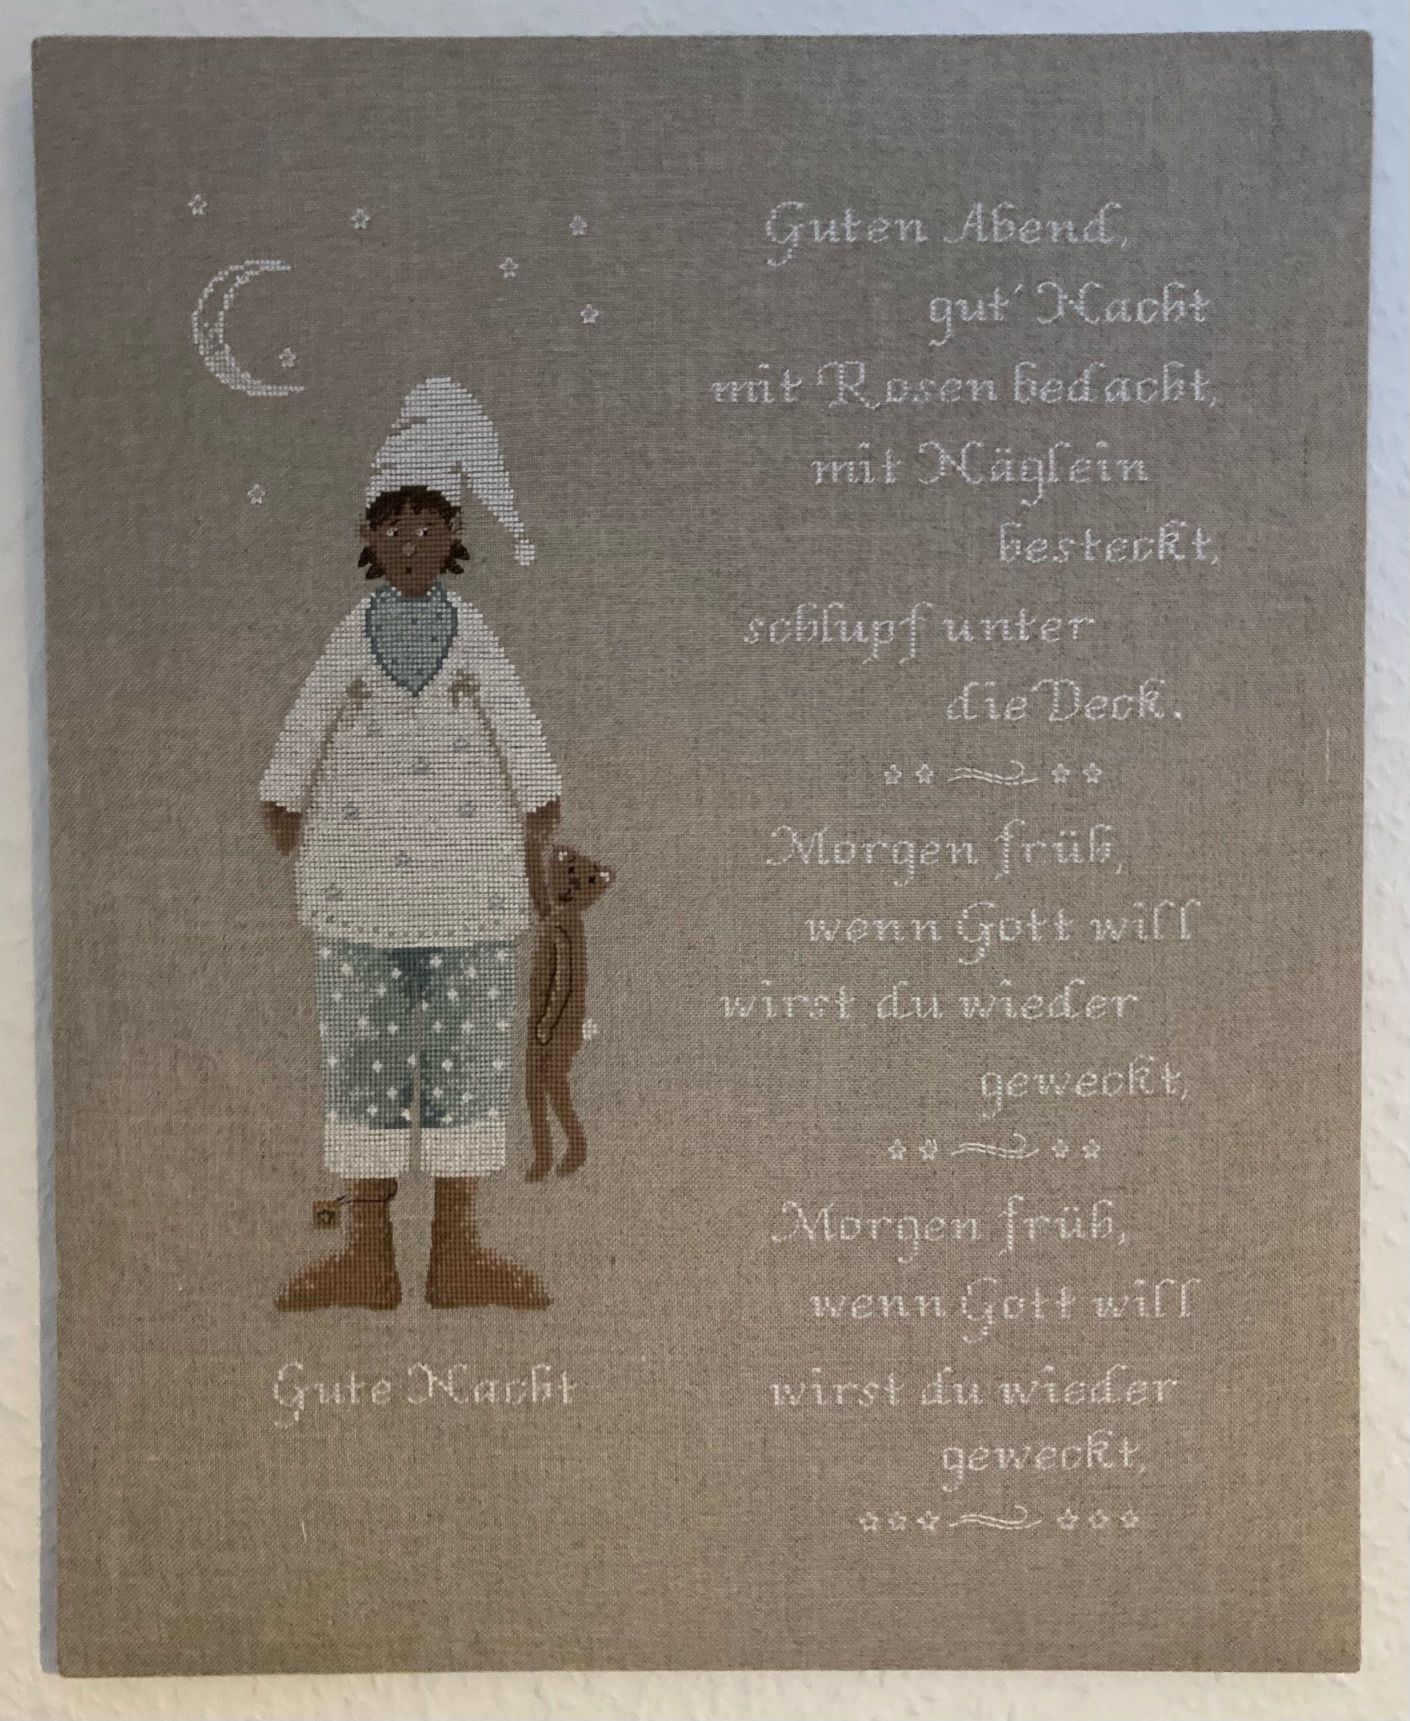 Guten Abend,
gut' Nacht
mit Rosen bedacht,
mit Näglein
besteckt,
schlupf unter
die Deck.
Morgen früh,
wenn Gott will
wirst du wieder
geweckt,
Morgen früh,
wenn Gott will
wirst du wieder
geweckt,
Gute Nacht